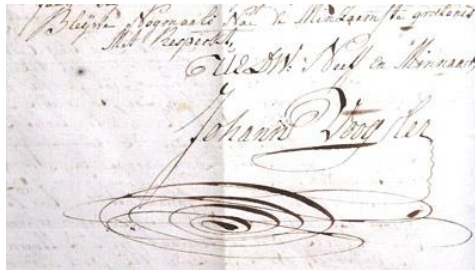 Blijve Nogmaals Nae de Minsaemste groetenis
Met Respect,
UEDW: Neef en Minnaar,
Johann Voogsten